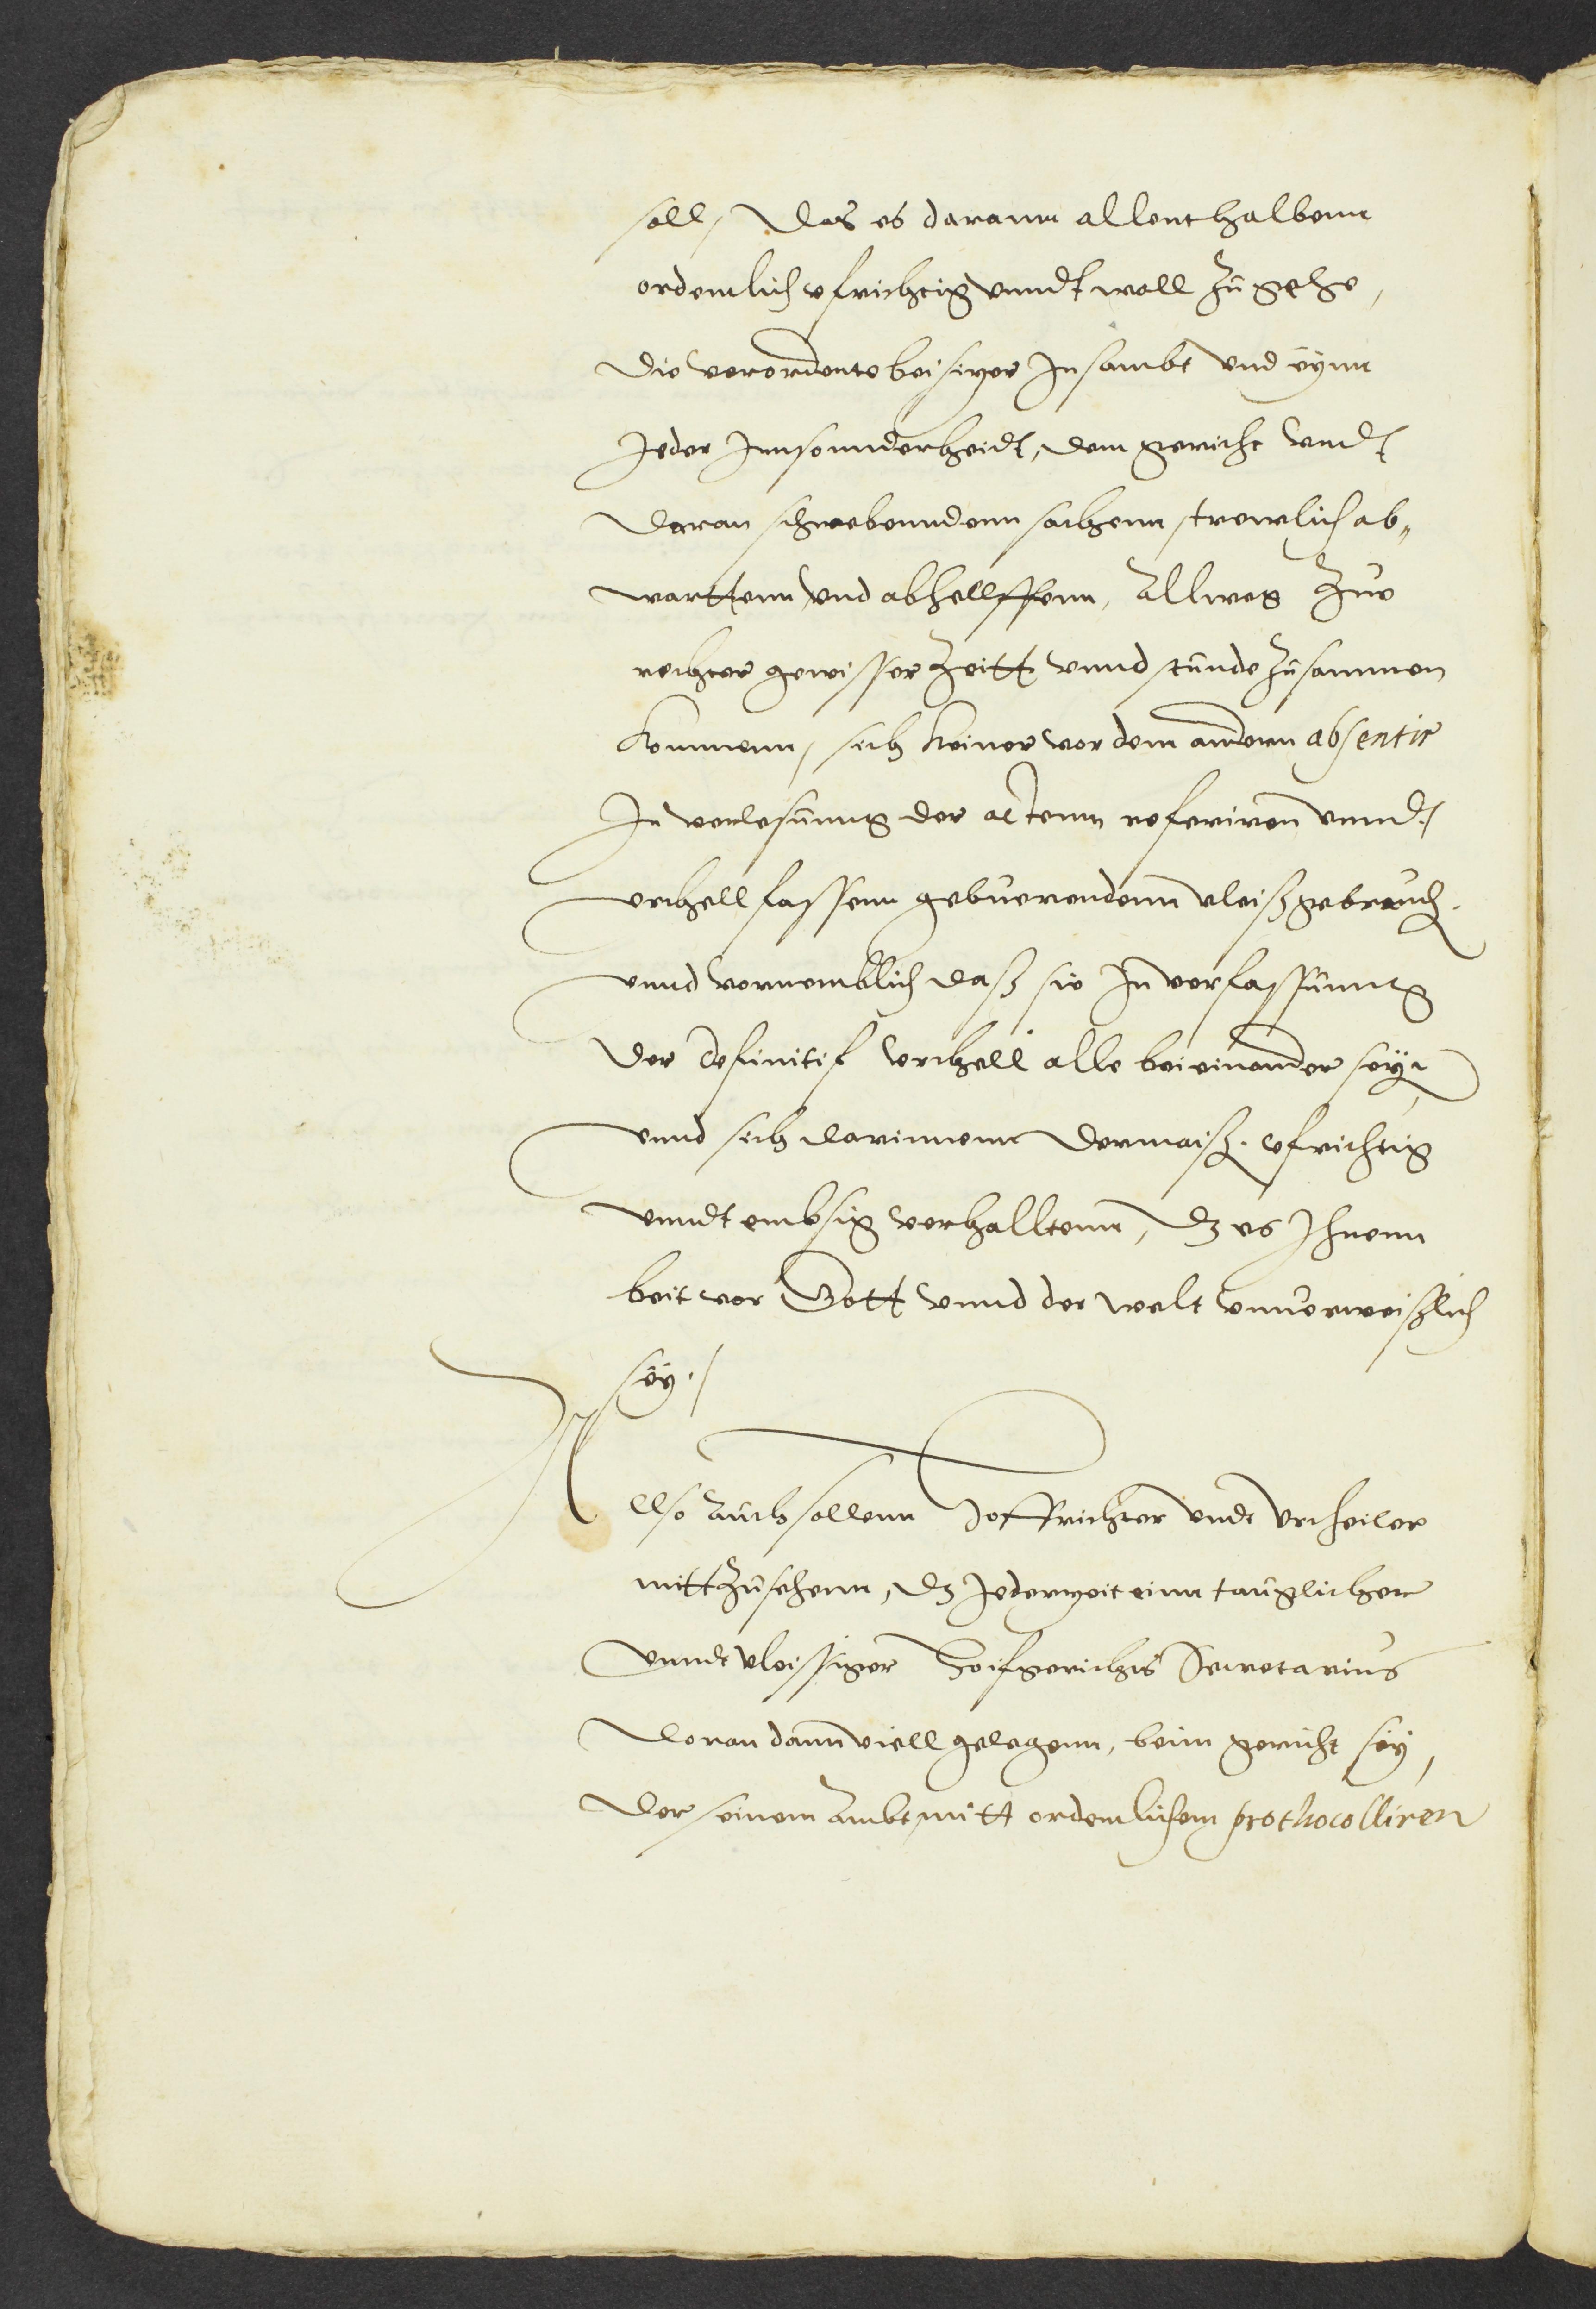 soll, das es darann allenthalbenn
ordemlich vfrichtig vnndt woll zu gehe,
die verordente beisizer Insambt vnd eynn
Jeder Innsonnderheidt, dem gericht vndt
daran schwebenndenn sachenn, trewlich ab„
warttenn vnd abhellffenn, Allweg zue
rechter gewisser Zeitt vnnd stunde zusammen
kommenn, sich keiner vor dem andern absentir
In verlesunng der actenn referiren vnnd
vrthell fassenn gebuerendenn vleiß gebrauch.
vnnd vornemblich daß sie In verfassunng
der definitif vrthell alle bei einander seyn
vnnd sich darinnenn dermaiß. vfrichtig
vnndt embsig verhalltenn, dz es Ihnenn
beit vor Gott vnnd der welt vnuerweißlich
sey./
Allso auch sollenn Hoffrichter vndt Vrtheiler
mitt zusehenn, dz Jederzeit einn tauglicher
vnndt vleissiger Hoifgerichts Secretarius
doran dann viell gelegenn, beim gericht sey,
der seinem Ambt, mitt ordemlichem prothocolliren